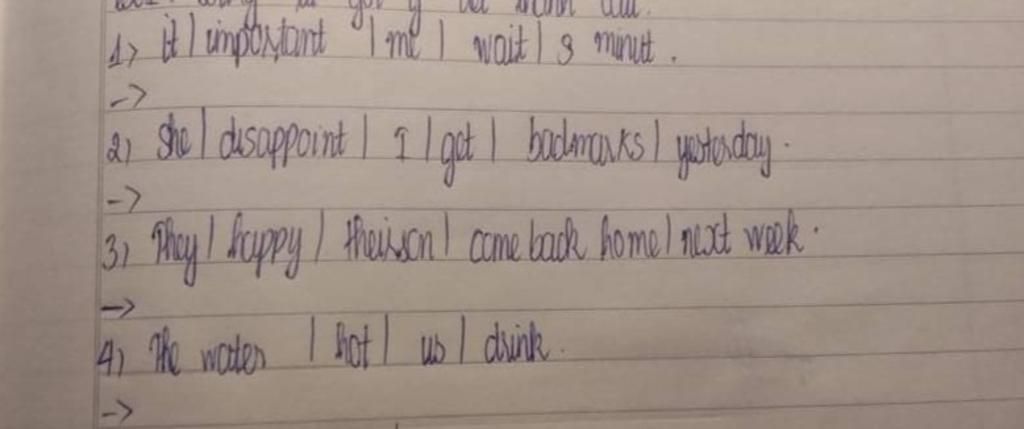 1) it | important | me | wait | 3 minut .
->
2) She | disappoint | I | got | badmarks | yesterday .
->
3) They | happy | their son | come back home | next week .
->
4) The water | hot | us | drink .
->